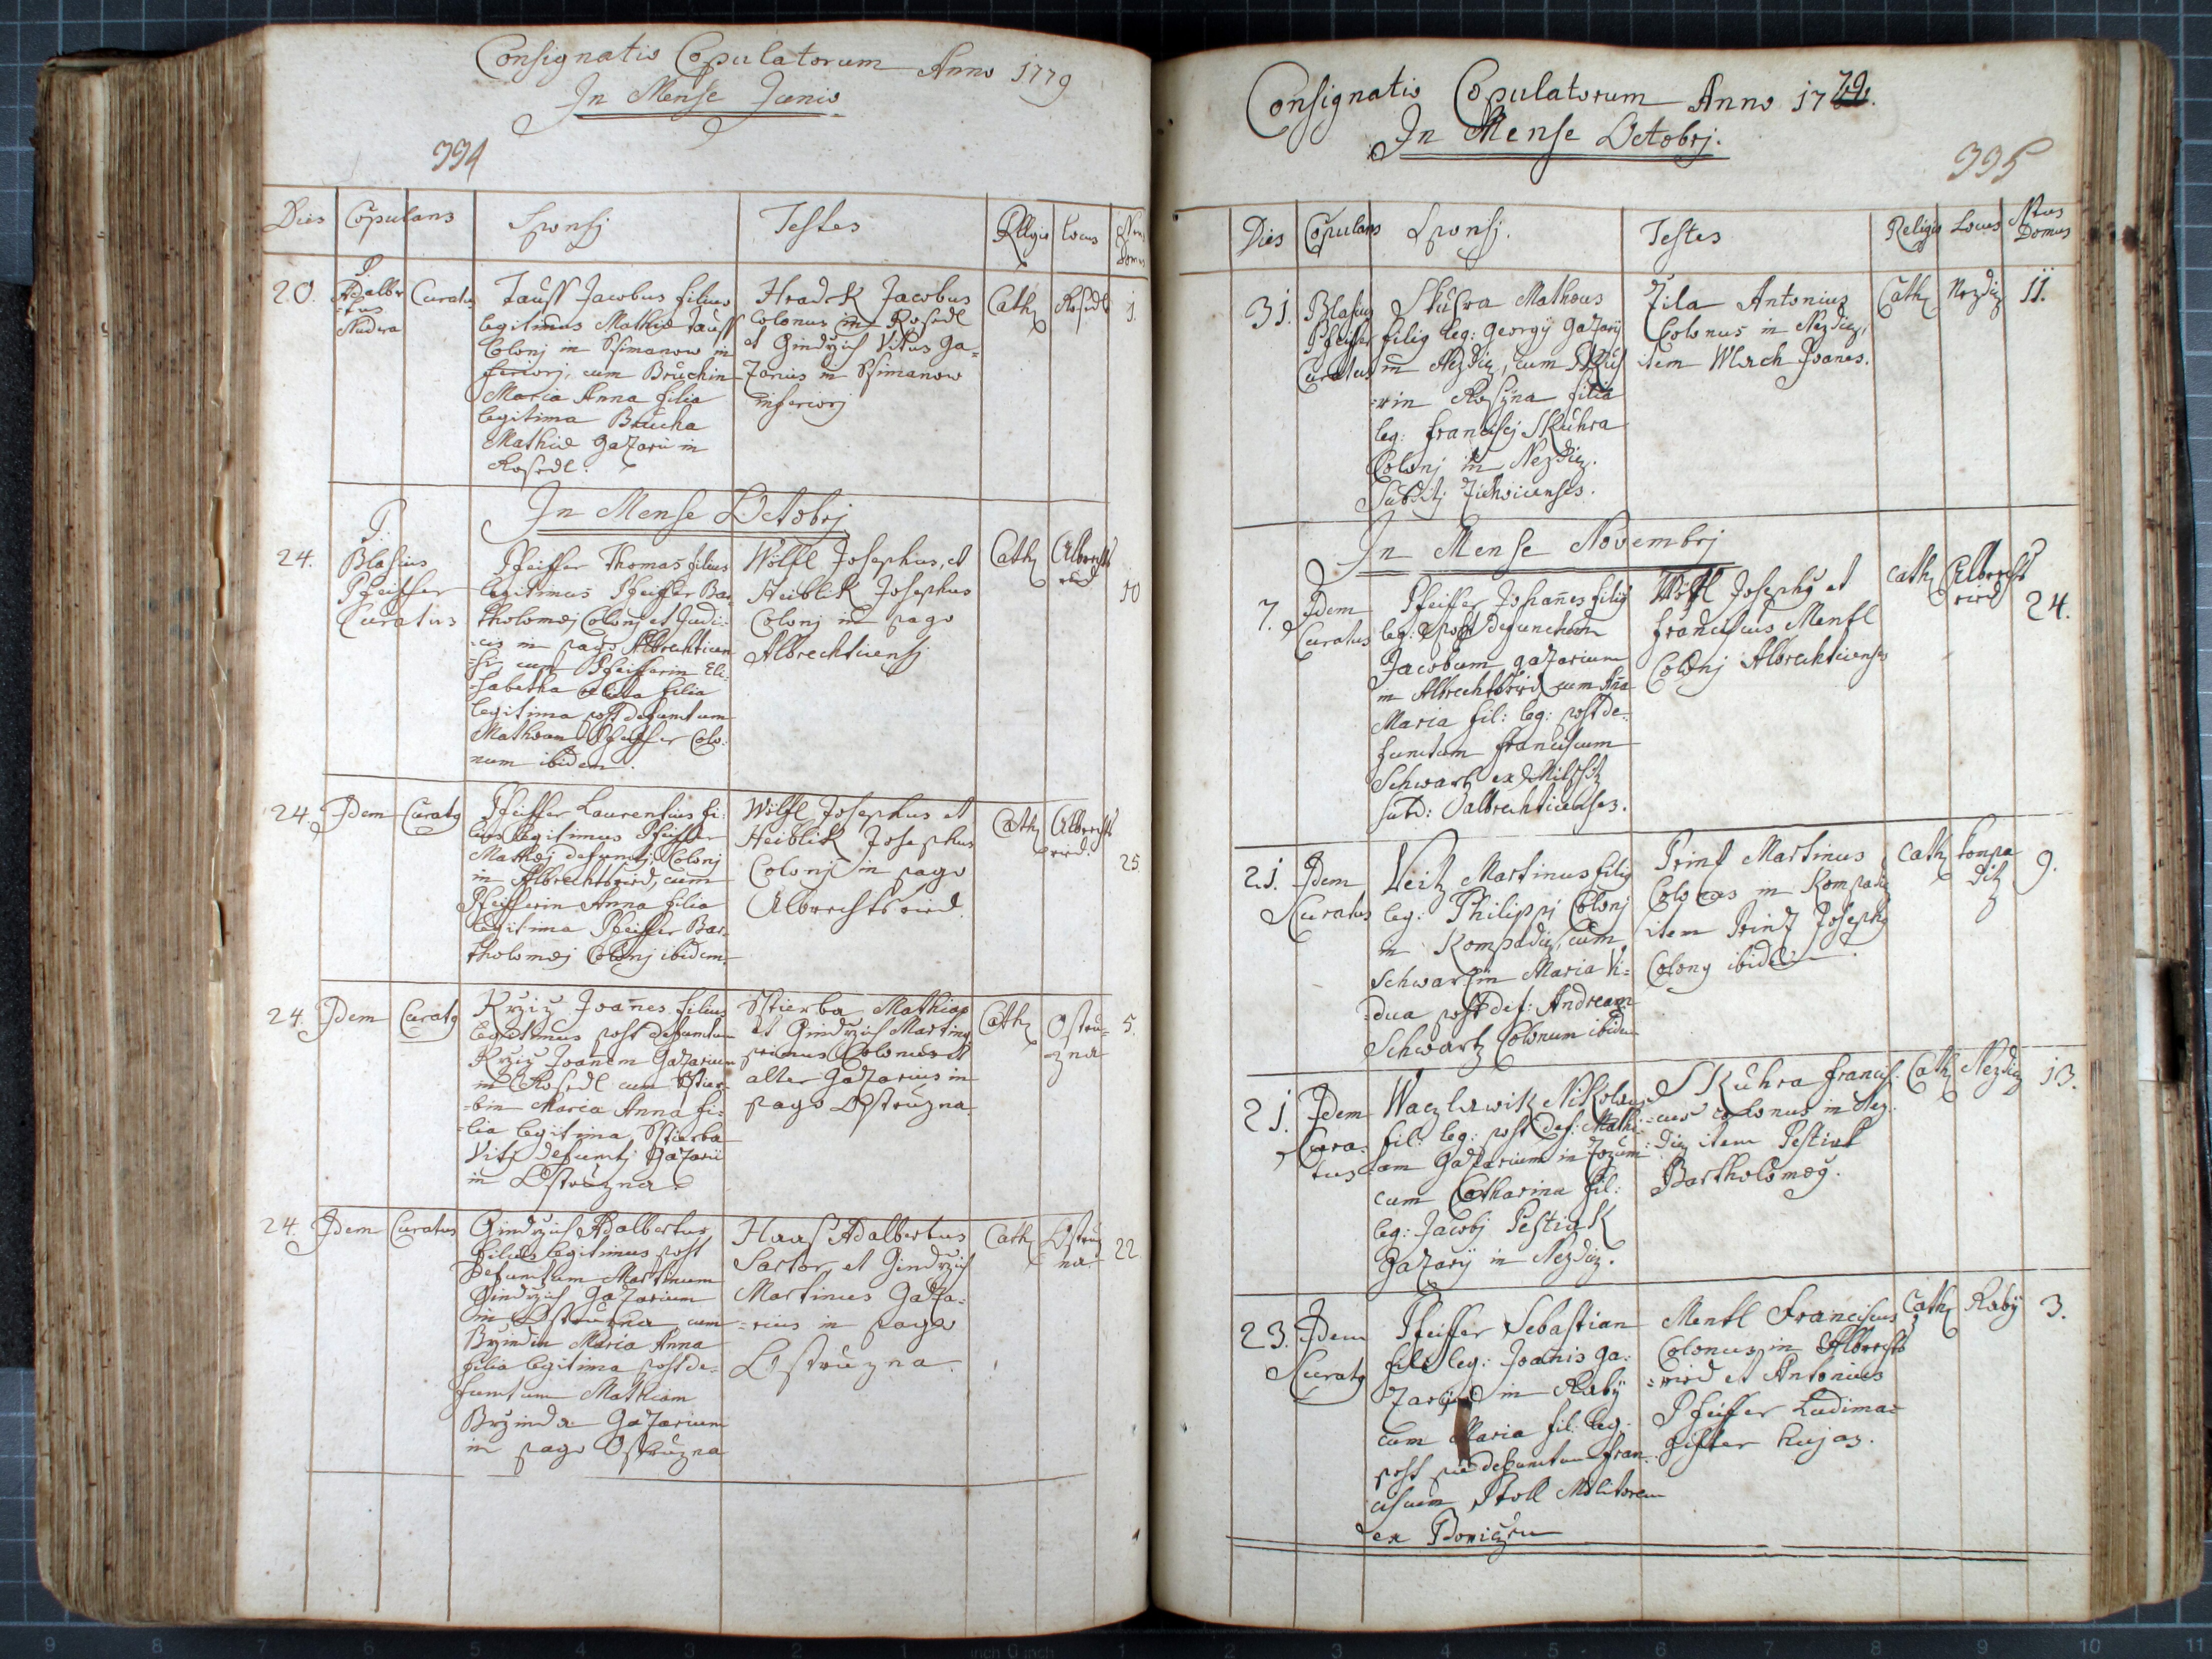 Consignatio Copulatorum Anno 1779
In Mense Junio
394
Dies Copulans Sponsj Testes Religio Locus Nrus Domus
20. P. Adalbertus Curatus
Tauss Jacobus filius
legitimus Mathiæ Tauss
Colonj in Psimanow in
feriorj, cum Bruchin
Maria Anna filia
legitima Brucha
Mathiæ Gazarii in
Rosedl.
Hradek Jacobus
Colonus in Rosedl
et Gindrzich Vitus Ga-
zarius in Psimanow
inferiorj
Cath Rosedl 1.
In Mense Octobrj
24. P.
Blasius
Pfeiffer
Curatus
Pfeiffer Thomas filius
legitimus Pfeiffer Bar-
tholomæj Colonj et Judi-
cis in pago Albrechticen
-si cum Pfeifferin Eli-
-sabetha filia
legitima post defunctum
Mathæum Pfeiffer Colo-
num ibidem.
Wölfl Josephus, et
Heiblik Josephus
Colonj in pago
Albrechticensj
Cath Albrechts
ried 10
24. Idem Curatg
Pfeiffer Laurentius fi-
lius legitimus Pfeiffer
Mathæj defunctj Colonj
in Albrechtsried, cum
Pfeifferin Anna filia
legitima Pfeiffer Bar-
tholomæj Colonj ibidem.
Wölfl Josephus et
Heiblik Josephus
Colonj in pago
Albrechtsried.
Cath Albrechts
ried. 25.
24. Idem Curatg
Krziz Joañes filius
legitimus post defunctum
Krziz Joañem Gazarium
in Rosedl cum Stier-
-bin Maria Anna fi-
-lia legitima Stierba
Viti defunctj Gazarii
in Ostruzna.
Stierba Mathias
et Gindrzich Marting
primus Colonus et
alter Gazarius in
pago Ostruzna.
Cath Ostru-
zna 5.
24. Idem Curatus
Gindrzich Adalbertus
filius legitimus post
defunctum Martinum
Gindrzich Gazarium
in Ostruzna, cum
Brzindin Maria Anna
filia legitima post de-
functum Mathiam
Brzinda Gazarium
in pago Ostruzna
Haas Adalbertus
Sartor, et Gindrzich
Martinus Gaza-
-rius in pago
Ostruzna.
Cath Ostruz
na 22.
Consignatio Copulatorum Anno 1779.
In Mense Octobrj.
395
Dies Copulans Sponsj. Testes Religio Locus Nrus Domus
31. Blasius
Pfeiffer
Curatus
Skuhra Mathæus
filig leg: Georgij Gazarij
in Nezdiz, cum Skuh
-rin Rosina filia
leg: Francisij Skuhra
Colonj in Nezdiz.
Subditj Zichovicenses.
Zila Antonius
Colonus in Nezdiz,
item Wlach Joanes.
Cath Nezdiz 11.
In Mense Novembrj
7. Idem
Curatus
Pfeiffer Johañes filig
leg: post defunctum
Jacobum gazarium
in Albrechtsried cum Aña
Maria fil: leg: post de-
functum Franciscum
Schwartz ex
subd: albrechticenses.
Wölfl Josephg et
Franciscus Mentl
Colonj Albrechticenses
Cath Albrechts
ried 24.
21. Idem
Curatus
Veitz Martinus filig
leg: Philippj Colonj
in Kompadiz, cum
Schwartzin Maria Vi-
-dua post def: Andream
Schwartz Colonum ibidem
Print Martinus
Colonus in Kompadiz
item Print Josephg
Colong ibidem.
Cath Kompa
ditz 9.
21. Idem
Cura-
tus
Waczlawik Nikolaus
fil: leg: post def: Mathi-
am Gazarium in
cum Catharina fil:
leg: Jacobj Pestiak
Gazarij in Nezdiz.
Skuhra Francis-
-cus colonus in Nez-
diz item Pestiak
Bartholomæg.
Cath Nezdiz 13.
23. Idem
Curatg
Pfeiffer Sebastian
fili leg: Joanis Ga-
zarij in Raby
cum Maria fil: leg:
post pie defunctum Fran-
ciscum Stoll Molitorem
ex
Mentl Franciscus
Colonus in Albrechts
-ried et Antonius
Pfeiffer Ludima-
gister hujas.
Cath Raby 3.